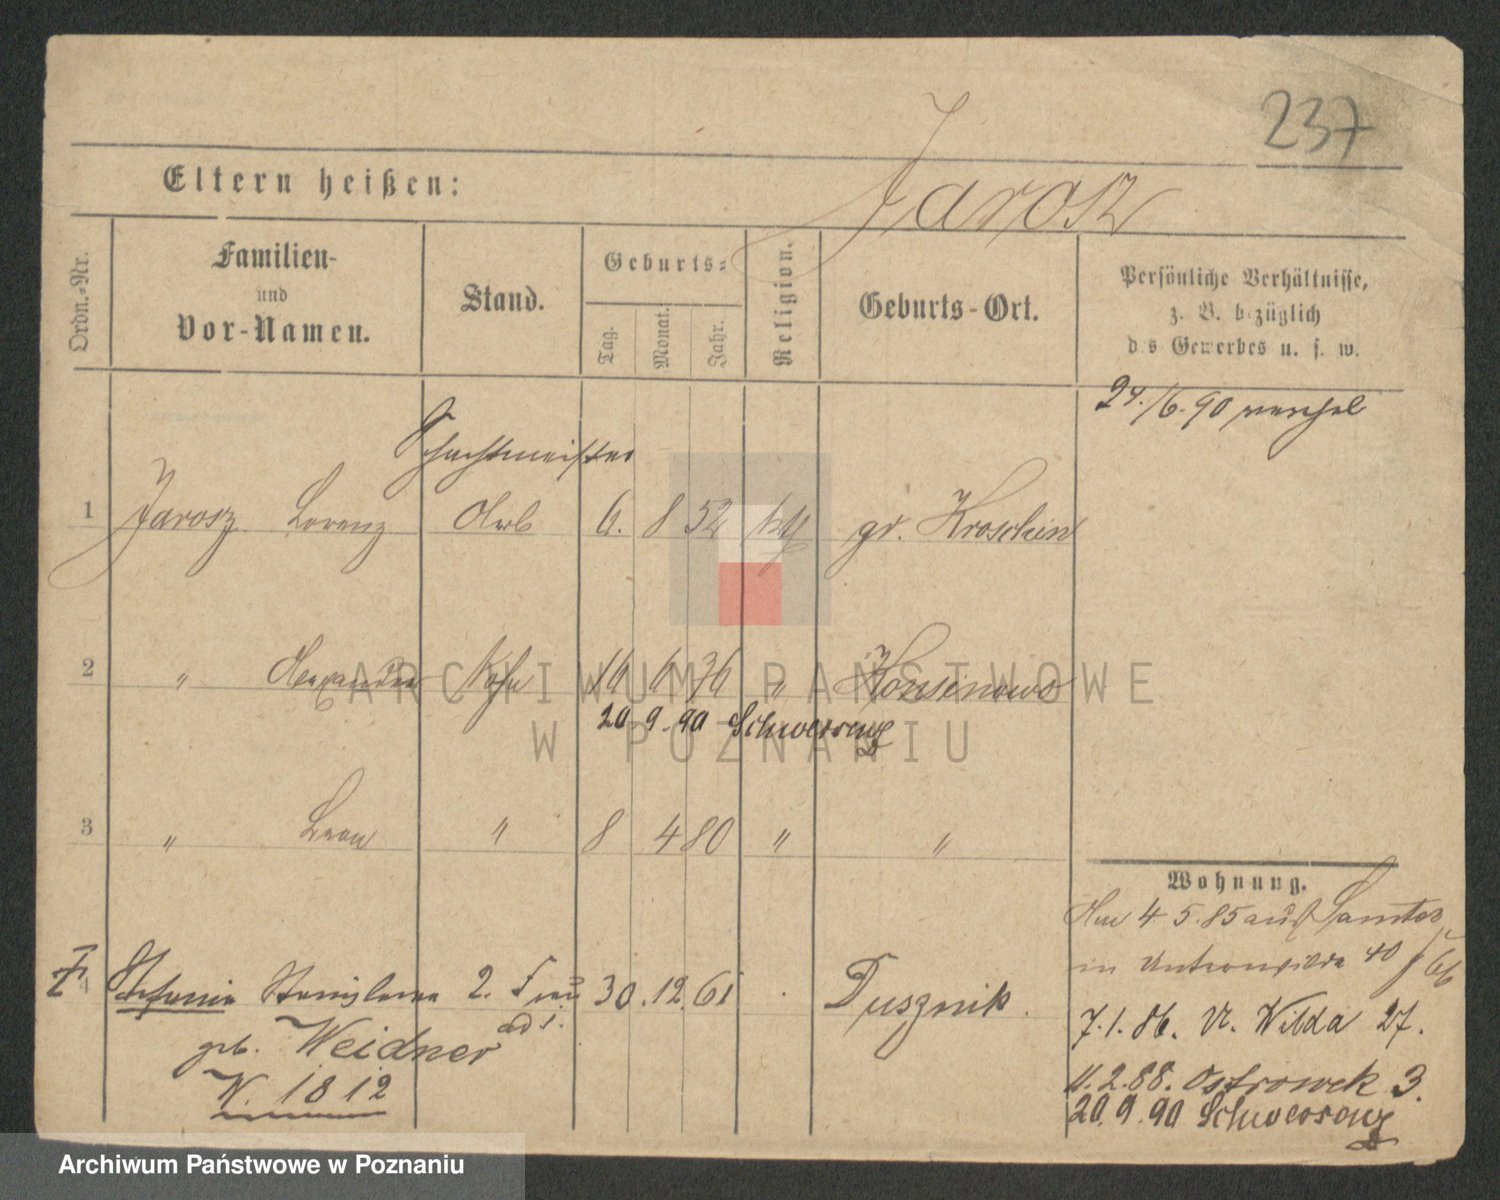 237
Eltern heißen:
Jarosz
Ordn.-Nr.
Familien-
und
Vor-Namen.
Stand.
Geburts-
Tag.
Monat.
Jahr.
Religion.
Geburts-Ort.
Persönliche Verhältnisse,
z. B. bezüglich
des Gewerbes u. s. w.
24./6.90
Schachtmeister
1 Jarosz Lorenz Arb 6. 8 52 kth gr. Kroschin
2 " Alexander Sohn 16 6 76 "
20 9. 90 Schwersenz
3 " Leon " 8 4 80 " "
Wohnung.
Am 4. 5. 85 aus Samter
in Unterwilda 40
4 Stefanie Stanislawa 2. Frau 30. 12. 61 Dusznik.
ad 1.
geb. Weidner
7. 1. 86. U. Wilda 27.
W. 1812
11. 2. 88. Ostrowek 3.
20. 9. 90 Schwersenz
ARCHIWUM PAŃSTWOWE
W POZNANIU
Archiwum Państwowe w Poznaniu